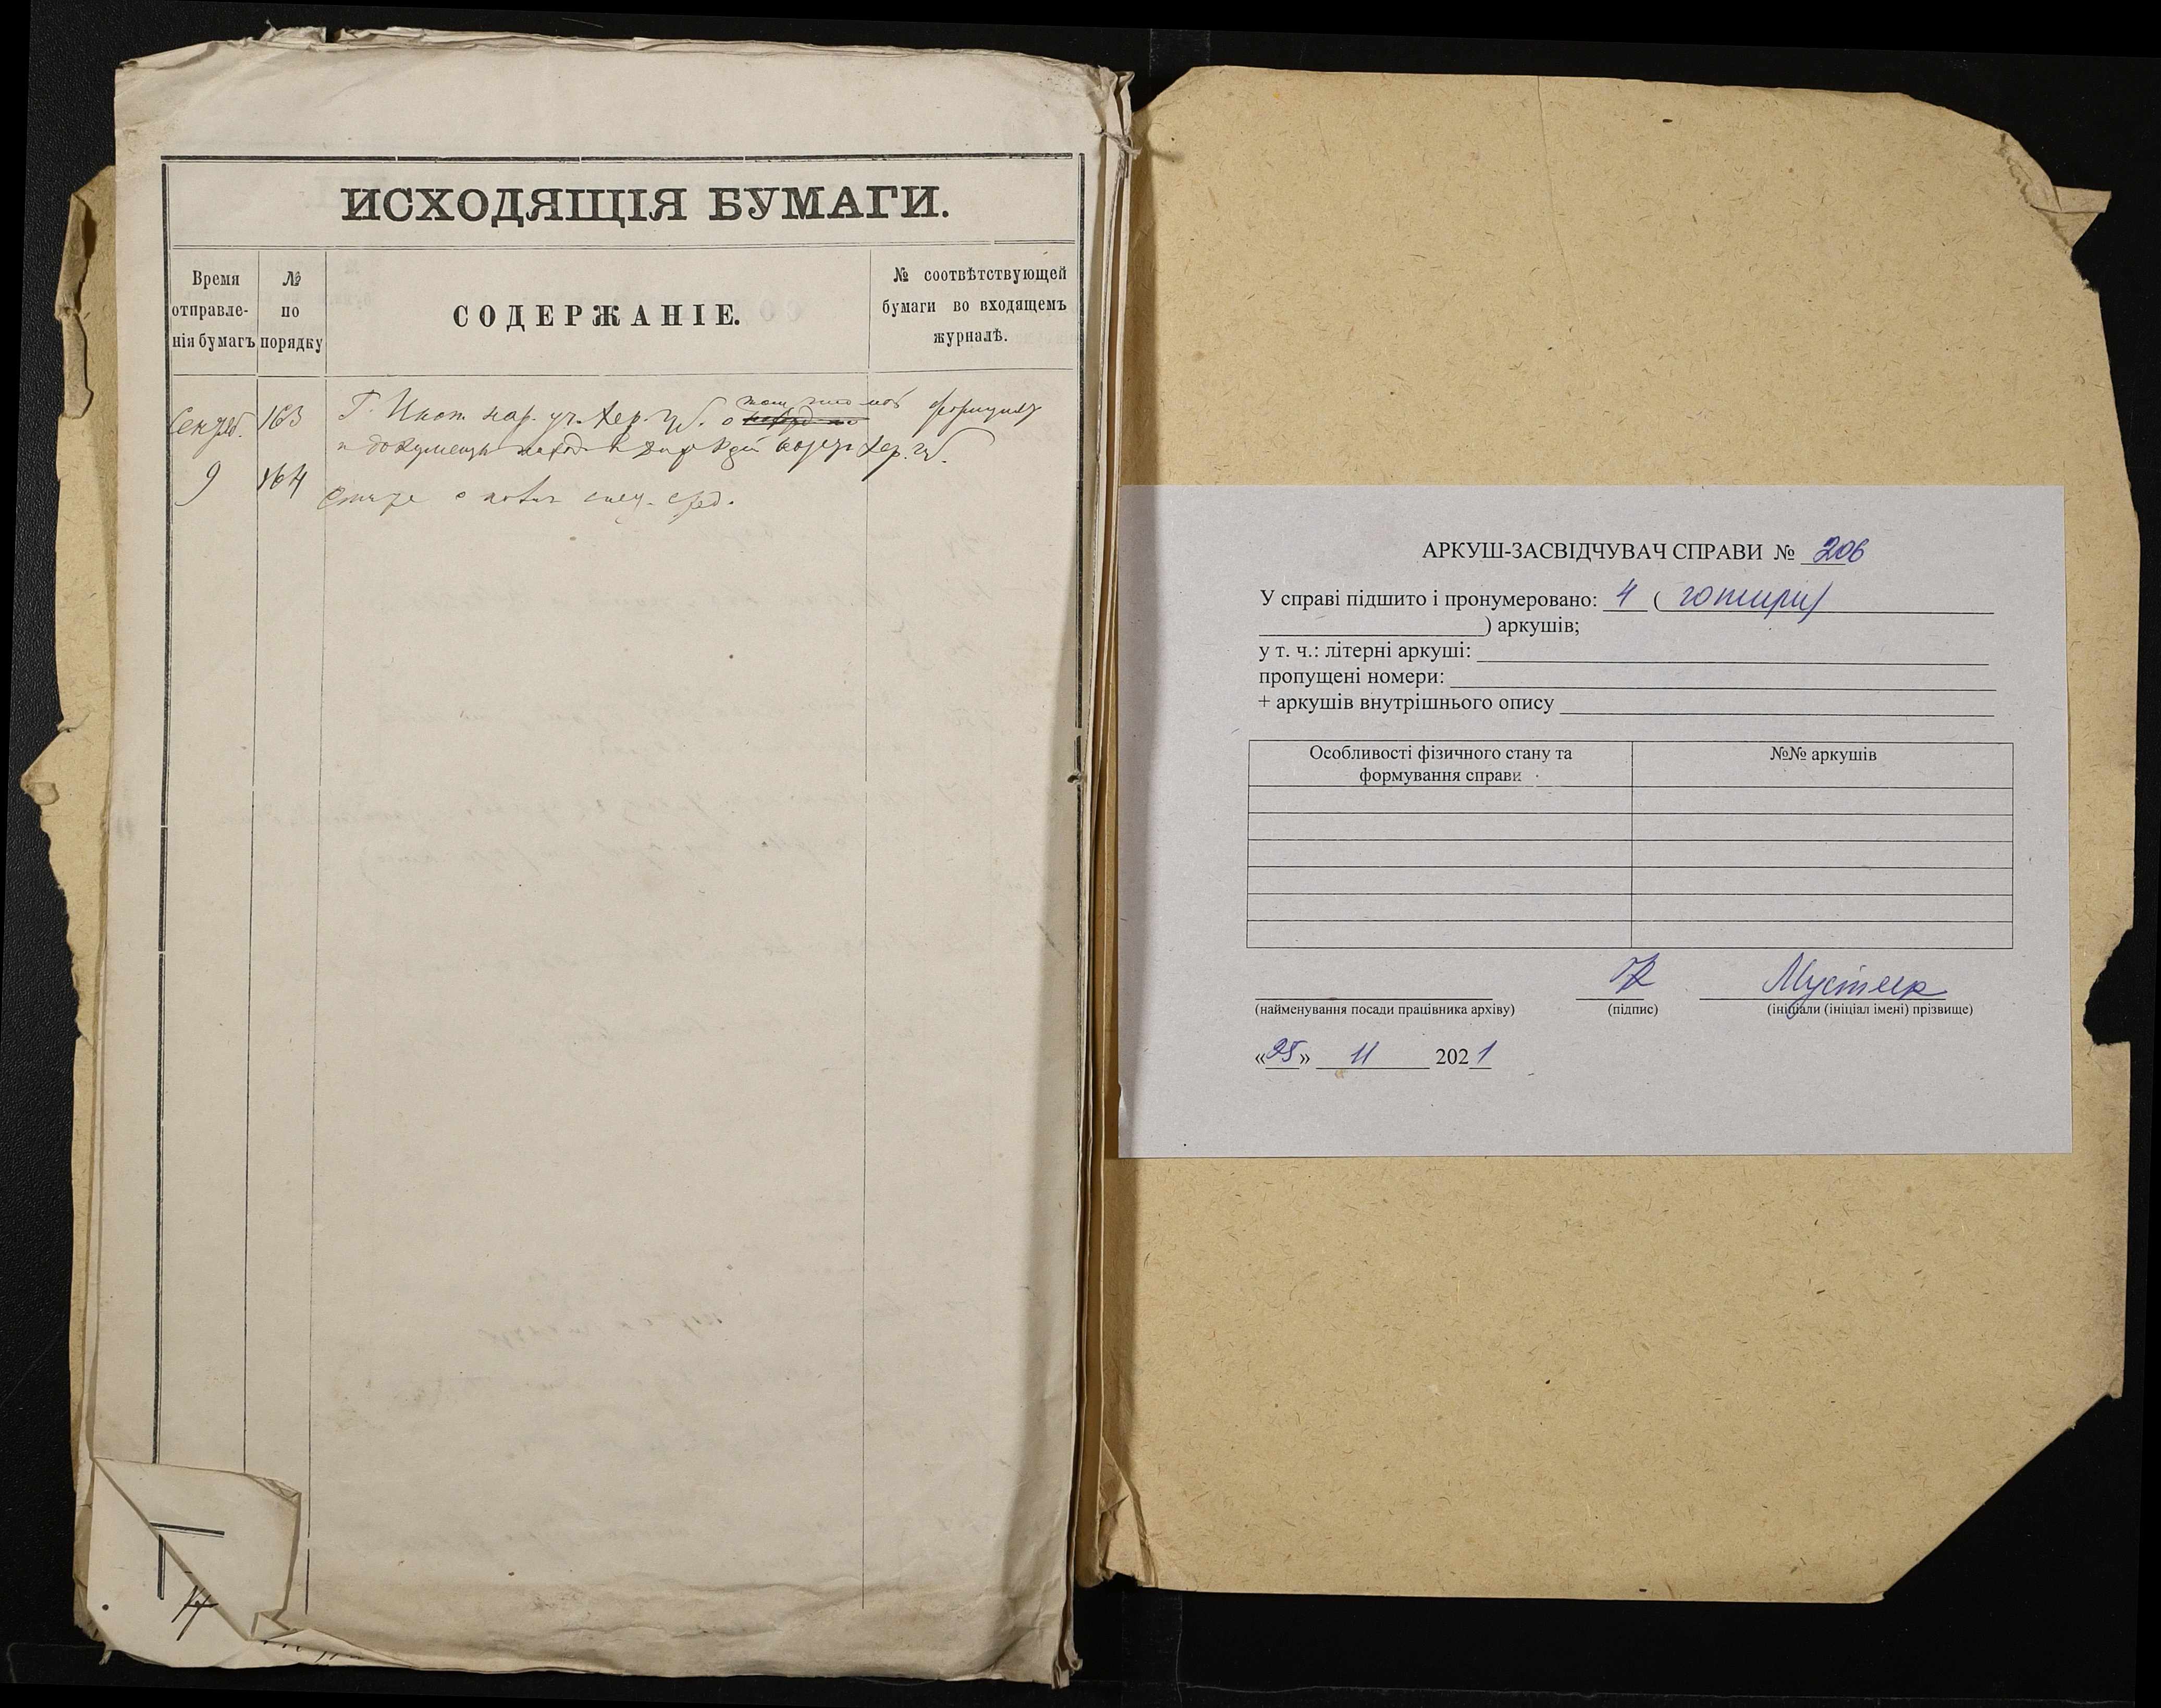 ИСХОДЯЩІЯ БУМАГИ.
Время
отправле-
нія бумагъ
№
по
порядку
СОДЕРЖАНІЕ.
№ соотвѣтствующей
бумаги во входящемъ
журналѣ.
Сентяб. 163 Г. Инсп. нар. уч. Хер. губ. о
и Хер. губ.
9 164 о спец. сред.
АРКУШ-ЗАСВІДЧУВАЧ СПРАВИ № 206
У справі підшито і пронумеровано: 4 ( чотири)
) аркушів;
у т. ч.: літерні аркуші:
пропущені номери:
+ аркушів внутрішнього опису
Особливості фізичного стану та
формування справи
№№ аркушів
(найменування посади працівника архіву)
(підпис)
(ініціали (ініціал імені) прізвище)
«25» 11 2021